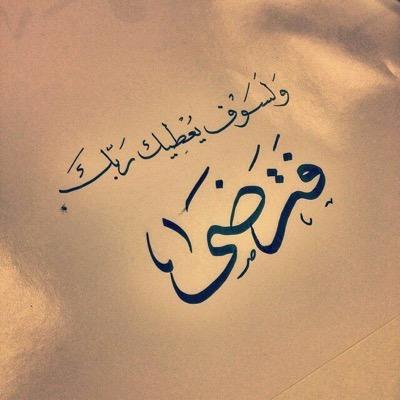 وَلَسَوْفَ يُعْطِيكَ رَبُّكَ
فَتَرَضَىٰ